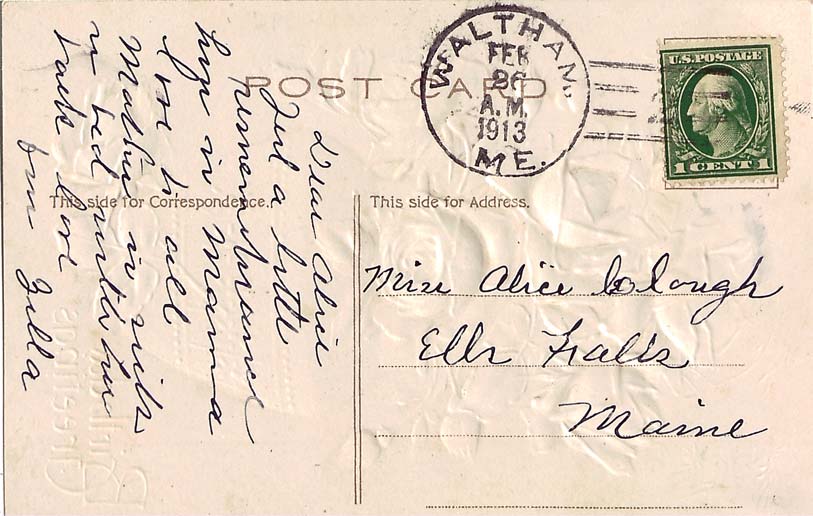 WALTHAM,
FEB
26
A.M.
1913
ME.
U.S. POSTAGE
1 CENT 1
POST CARD
This side for Correspondence.
This side for Address.
Dear Alice
Just a little
remembrance
hope in Mama
love to all
Mother is sick
in bed with her
back love
from Zella
Miss Alice Clough
Ells Falls
Maine
Birthday
Greetings